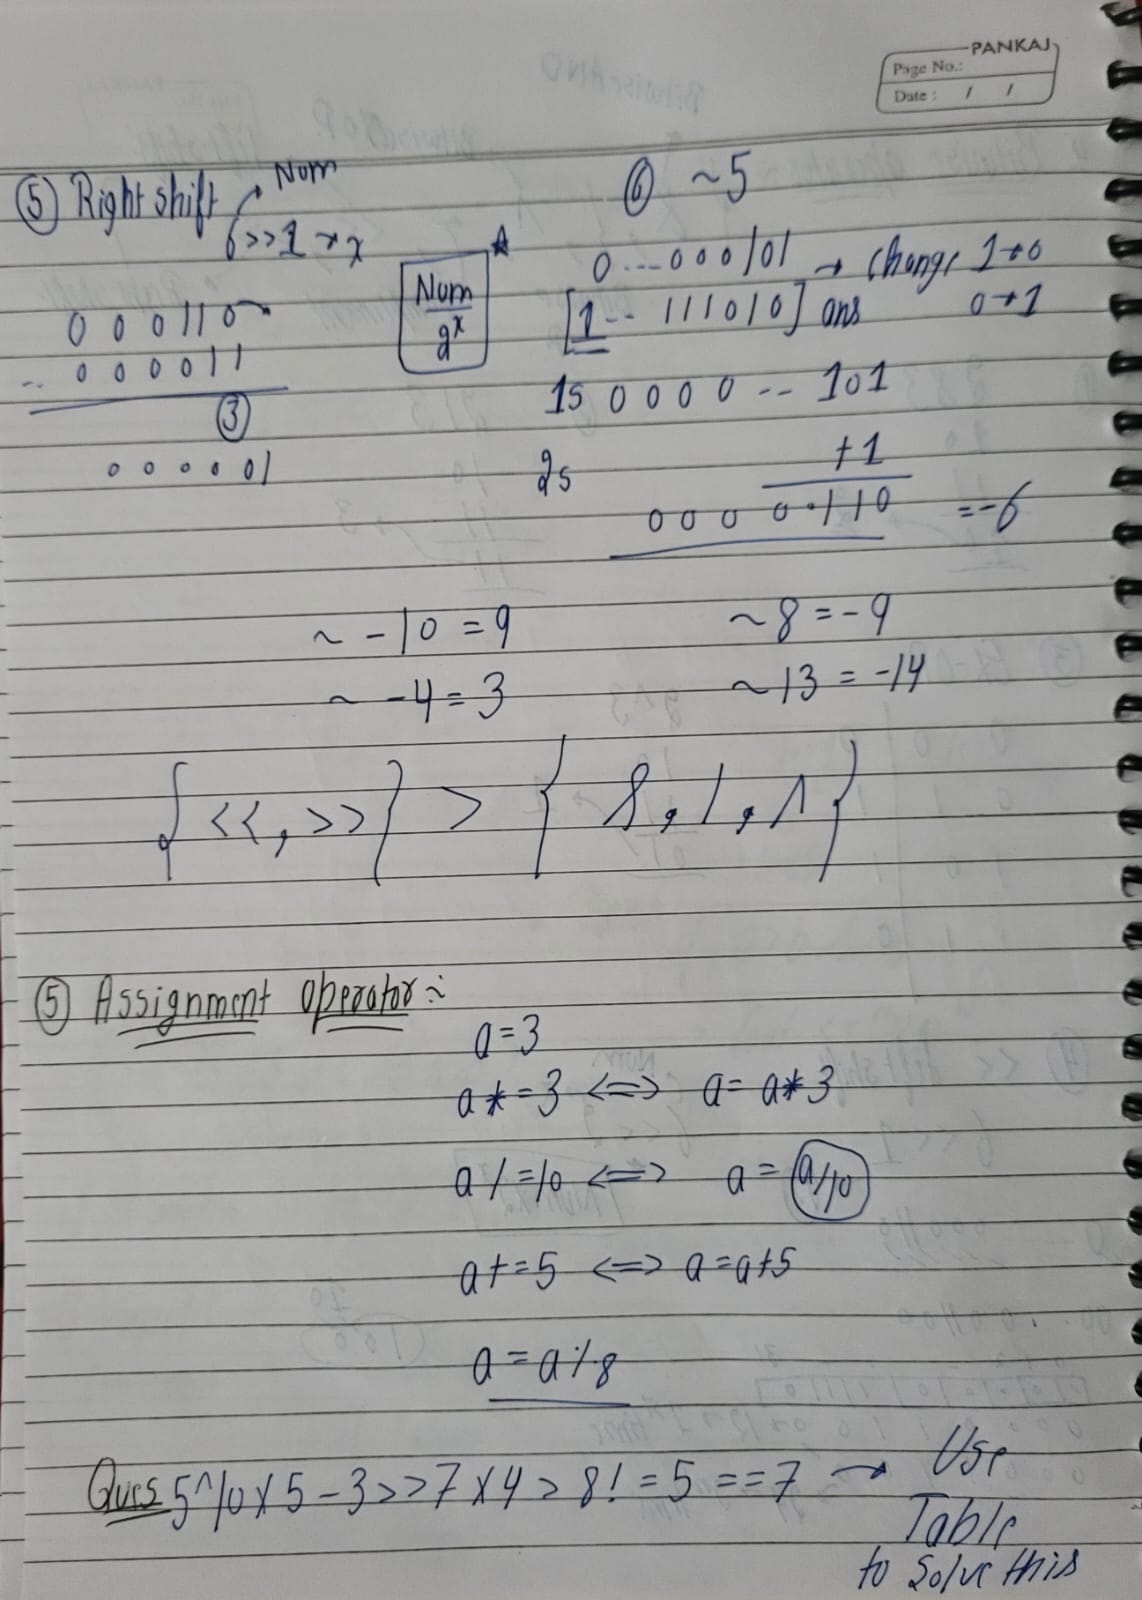 PANKAJ
Page No.:
Date : / /
⑤ Right shift
Num
6>>1 → x
0 0 0 1 1 0
.. 0 0 0 0 1 1
③
0 0 0 0 0 1
Num
2^x
⑥ ~5
0 --- 000101 → change 1→0
[1-- 111010] ans 0→1
1s 0 0 0 0 -- 101
2s +1
0 0 0 0 0 . 1 1 0 = -6
~ -10 = 9 ~8 = -9
~ -4 = 3 ~13 = -14
{ <<, >> } > { &, |, ^ }
⑤ Assignment operator :-
a = 3
a *= 3 <=> a = a*3
a /= 10 <=> a = a/10
a += 5 <=> a = a+5
a = a % 8
Ques 5^10 x 5 - 3 >> 7 x 4 > 8 ! = 5 == 7 → Use
Table
to solve this